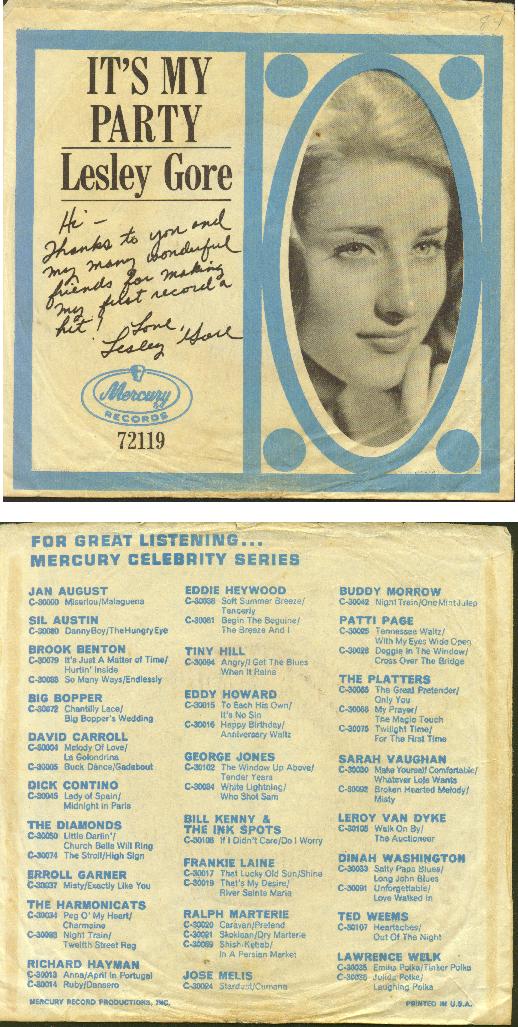 84
IT'S MY
PARTY
Lesley Gore
Hi —
Thanks to you and
my many wonderful
friends for making
my first record a
hit!
Love,
Lesley Gore
Mercury
RECORDS
72119
FOR GREAT LISTENING...
MERCURY CELEBRITY SERIES
JAN AUGUST
C-30000 Misirlou/Malaguena
SIL AUSTIN
C-30080 DannyBoy/TheHungryEye
BROOK BENTON
C-30079 It's Just A Matter of Time/
Hurtin' Inside
C-30088 So Many Ways/Endlessly
BIG BOPPER
C-30072 Chantilly Lace/
Big Bopper's Wedding
DAVID CARROLL
C-30004 Melody Of Love/
La Golondrina
C-30005 Buck Dance/Gadabout
DICK CONTINO
C-30045 Lady of Spain/
Midnight in Paris
THE DIAMONDS
C-30050 Little Darlin'/
Church Bells Will Ring
C-30074 The Stroll/High Sign
ERROLL GARNER
C-30037 Misty/Exactly Like You
THE HARMONICATS
C-30034 Peg O' My Heart/
Charmaine
Night Train/
Twelfth Street Rag
RICHARD HAYMAN
C-30013 Anna/April In Portugal
C-30014 Ruby/Dansero
MERCURY RECORD PRODUCTIONS, INC.
EDDIE HEYWOOD
Soft Summer Breeze/
Tenderly
C-30081 Begin The Beguine/
The Breeze And I
TINY HILL
C-30094 Angry/I Get The Blues
When It Rains
EDDY HOWARD
C-30015 To Each His Own/
It's No Sin
C-30016 Happy Birthday/
Anniversary Waltz
GEORGE JONES
C-30102 The Window Up Above/
Tender Years
C-30094 White Lightning/
Who Shot Sam
BILL KENNY &
THE INK SPOTS
If I Didn't Care/Do I Worry
FRANKIE LAINE
C-30017 That Lucky Old Sun/Shine
C-30019 That's My Desire/
River Sainte Marie
RALPH MARTERIE
C-30020 Caravan/Pretend
C-30021 Skokiaan/Dry Marterie
Shish-Kebab/
In A Persian Market
JOSE MELIS
C-30024 Stardust/Cumana
BUDDY MORROW
C-30042 Night Train/OneMintJulep
PATTI PAGE
C-30025 Tennessee Waltz/
With My Eyes Wide Open
C-30028 Doggie In The Window/
Cross Over The Bridge
THE PLATTERS
The Great Pretender/
Only You
My Prayer/
The Magic Touch
C-30075 Twilight Time/
For The First Time
SARAH VAUGHAN
Make Yourself Comfortable/
Whatever Lola Wants
C-30092 Broken Hearted Melody/
Misty
LEROY VAN DYKE
Walk On By/
The Auctioneer
DINAH WASHINGTON
C-30033 Salty Papa Blues/
Long John Blues
C-30091 Unforgettable/
Love Walked In
TED WEEMS
C-30107 Heartaches/
Out Of The Night
LAWRENCE WELK
C-30035 Emilia Polka/Tinker Polka
Julida Polka/
Laughing Polka
PRINTED IN U.S.A.